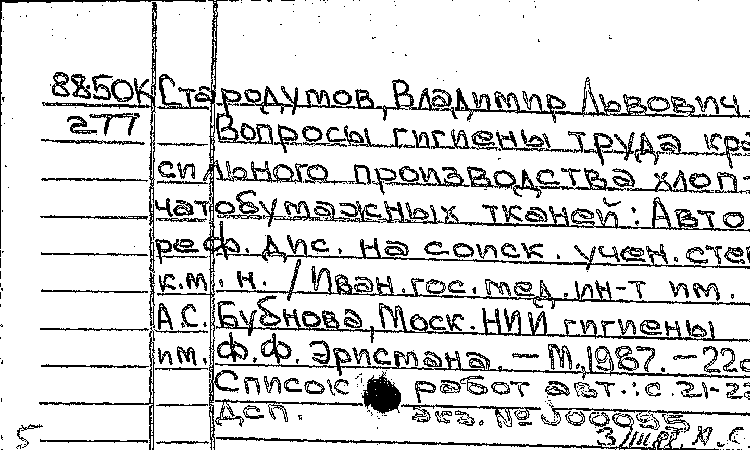 8850К Стародумов, Владимир Львович
277 Вопросы гигиены труда кра
сильного производства хлоп-
чатобумажных тканей: Авто
реф. дис. на соиск. учен. степ
к.м.н. / Иван. гос. мед. ин-т им.
А.С. Бубнова, Моск. НИИ гигиены
им. Ф.Ф. Эрисмана. — М., 1987. — 22с
Список работ авт.: с. 21-22
ДСП. экз. №
5